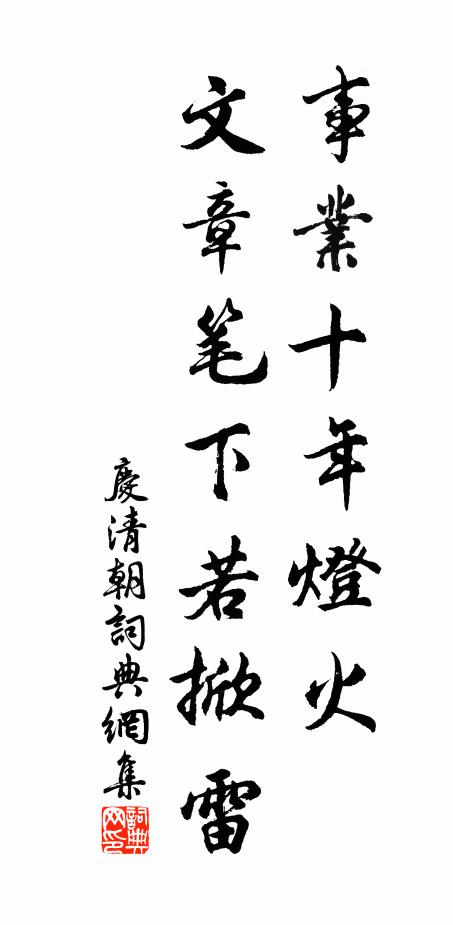 事業十年燈火
文章笔下若掀雷
慶清朝詞典網集
詞典
网印